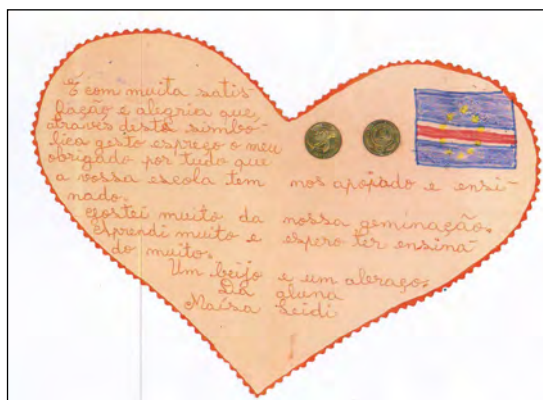 É com muita satis-
fação e alegria que,
através deste simbó-
lico gesto espreço o meu
obrigado por tudo que
a vossa escola tem nos apojado e ensi-
nado.
Gostei muito da nossa geminação.
Aprendi muito e espero ter ensina-
do muito.
Um beijo e um abraço.
Da aluna
Maísa Leidi